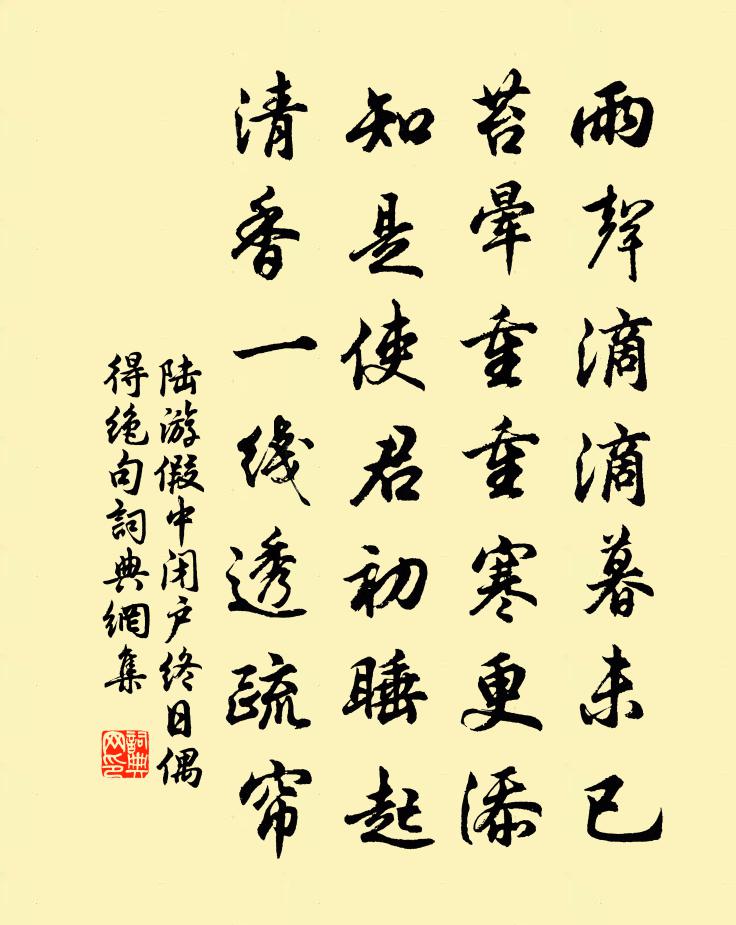 雨聲滴滴暮未已
苔暈重重寒更添
知是使君初睡起
清香一线透疏帘
陆游假中闭户终日偶
得绝句詞典網集
詞典网印